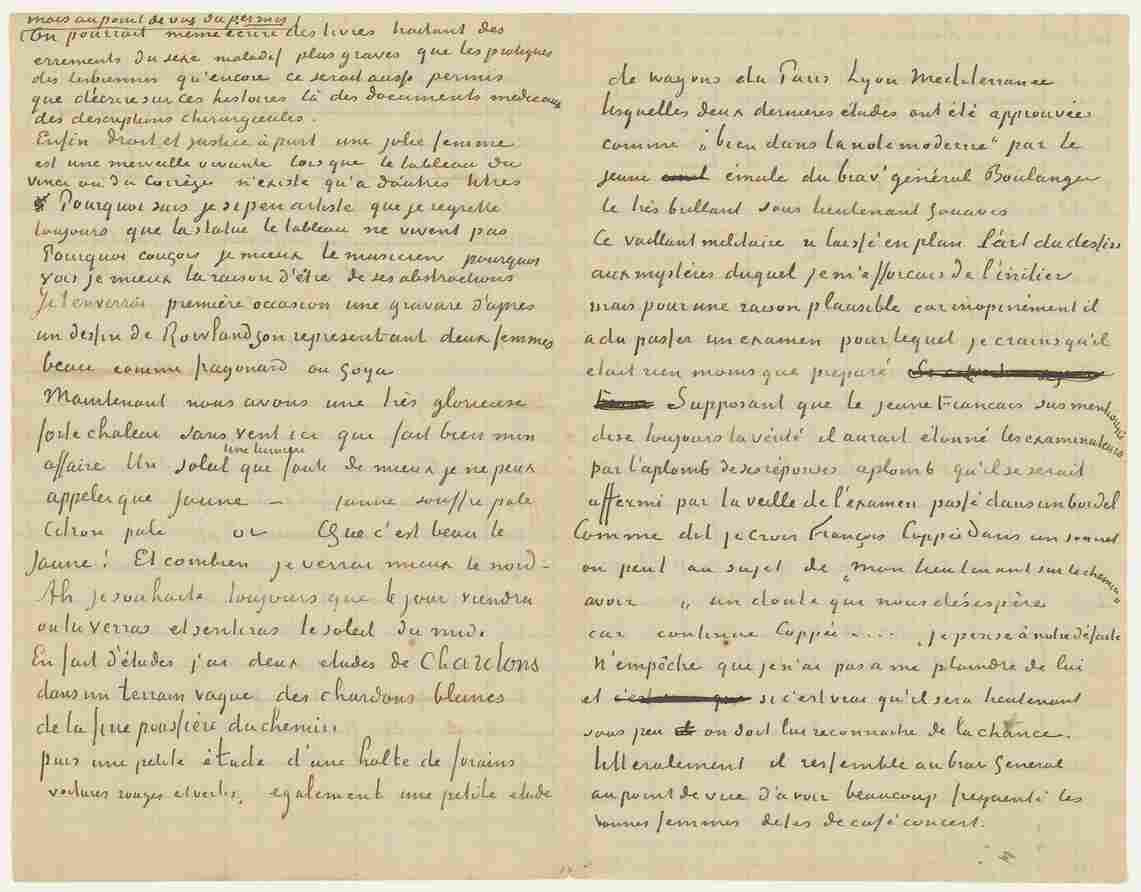 mais au point de vue du permis
(On pourrait meme ecrire des livres traitant des
errements du sexe maladif plus graves que les pratiques
des lesbiennes qu'encore ce serait aussi permis
que décrire sur ces histoires là des documents médicaux
des descriptions chirurgicales.
Enfin droit et justice à part une jolie femme
est une merveille vivante lorsque le tableau du
Vinci ou du Corrège n'existe qu'a d'autres titres
Pourquoi suis je si peu artiste que je regrette
toujours que la statue le tableau ne vivent pas
Pourquoi conçois je mieux le musicien pourquoi
vois je mieux la raison d'être de ses abstractions
Je t'enverrai première occasion une gravure d'après
un dessin de Rowlandson representant deux femmes
beau comme fragonard ou Goya
Maintenant nous avons une très glorieuse
forte chaleur sans vent ici que fait bien mon
affaire Un soleil une lumiere que faute de mieux je ne peux
appeler que jaune – jaune souffre pale
citron pale or Que c'est beau le
Jaune! Et combien je verrai mieux le nord –
Ah je souhaite toujours que le jour viendra
ou tu verras et sentiras le soleil du midi
En fait d'études j'ai deux etudes de Chardons
dans un terrain vague des chardons blancs
de la fine poussière du chemin.
puis une petite étude d'une halte de forains
voitures rouges et vertes, egalement une petite etude
de wagons du Paris Lyon Mediterranee
lesquelles deux dernieres études ont été approuvées
comme "bien dans la note moderne" par le
jeune émule du brav' général Boulanger
le très brillant sous lieutenant zouaves
Ce vaillant militaire a laissé en plan l'art du dessin
aux mystères duquel je m'efforcais de l'initier
mais pour une raison plausible car inopinément il
a du passer un examen pour lequel je crains qu'il
etait rien moins que preparé
Supposant que le jeune Francais susmentionné
dise toujours la vérité il aurait étonné les examinateurs
par l'aplomb de ses réponses aplomb qu'il se serait
affermi par la veille de l'éxamen passé dans un bordel
Comme dit je crois François Coppée dans un sonnet
on peut au sujet de "mon lieutenant sur le chemin"
avoir "un doute qui nous désespère
car continue Coppée .... je pense à notre défaite
N'empêche que je n'ai pas a me plaindre de lui
et si c'est vrai qu'il sera lieutenant
sous peu on doit lui reconnaitre de la chance.
litteralement il ressemble au brav General
au point de vue d'avoir beaucoup frequenté les
bonnes femmes dites de café concert.